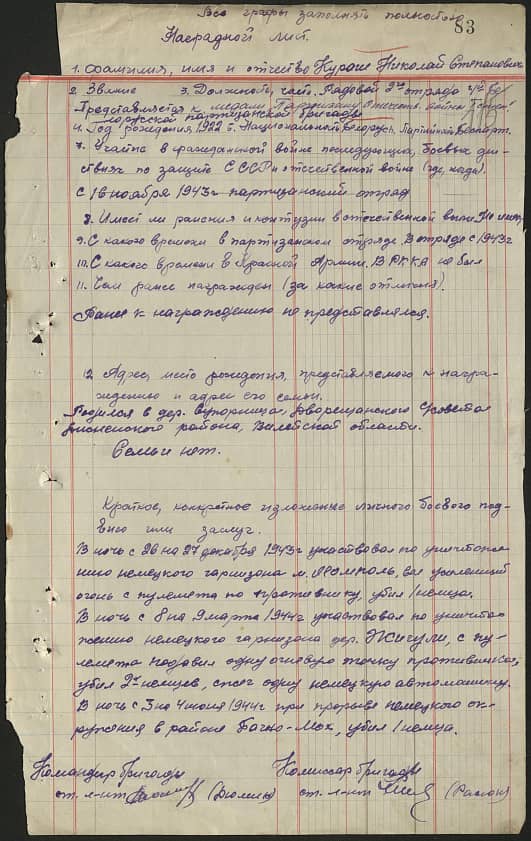 Все графы заполнять полностью
83
Наградной лист.
1. Фамилия, имя и отчество Куроше Николай Степанович
2. Звание 3. Должность, часть. Рядовой 2го отряда
Представляется к медали "Партизану Отечеств. войны
партизанской бригады
4. Год рождения 1922 г. Национальность Белорус, Партийность беспарт.
7. Участие в гражданской войне последующих, боевых дей-
ствиях по защите СССР и отечественной войне (где, когда).
С 16 ноября 1943 г партизанский отряд
8. Имеет ли ранения и контузии в отечественной войне Не имеет
9. С какого времени в партизанском отряде. В отряде с 1943 г
10. С какого времени в Красной Армии. В РККА не был
11. Чем ранее награжден (за какие отличия).
Ранее к награждению не представлялся.
12 Адрес, место рождения, представляемого к награ-
ждению и адрес его семьи.
Родился в дер. Дворещанского с/совета
района, Вилейской области.
Семьи нет.
Краткое, конкретное изложение личного боевого под-
вига или заслуг.
В ночь с 26 на 27 декабря 1943 г участвовал по уничтоже-
нию немецкого гарнизона м. вел усиленный
огонь с пулемета по противнику, убил 1 немца.
В ночь с 8 на 9 марта 1944 г участвовал по уничто-
жению немецкого гарнизона дер. Жигули, с пу-
лемета подавил одну огневую точку противника,
убил 2х немцев, сжег одну немецкую автомашину.
В ночь с 3 на 4 июня 1944 г при прорыве немецкого ок-
ружения в районе Мох, убил 1 немца.
Командир бригады Комиссар бригады
ст. л-нт ст. л-нт